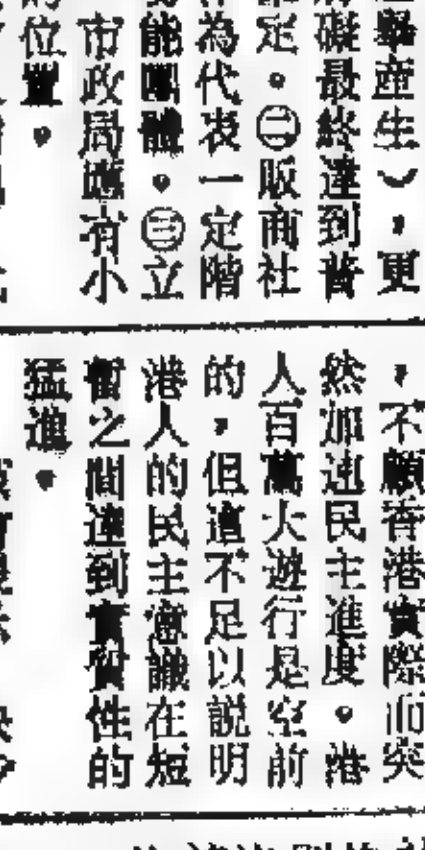 產生），更
礙最終達到普
定。㊁販商社
為代表一定階
能團體。㊂立
市政局應有小
位置。
，不顧香港實際而突
然加速民主進度。港
人百萬大遊行是空前
的，但這不足以說明
港人的民主意識在短
暫之間達到實質性的
猛進。